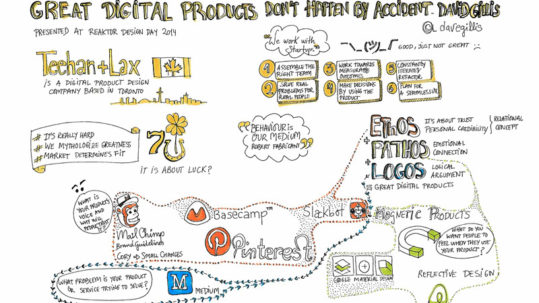 GREAT DIGITAL PRODUCTS DON'T HAPPEN BY ACCIDENT. DAVID GILLIS
@davegillis
PRESENTED AT REACTOR DESIGN DAY 2014
Teehan+Lax
IS A DIGITAL PRODUCT DESIGN
COMPANY BASED IN TORONTO
"We work with
Startups"
GOOD, JUST NOT GREAT
1 ASSEMBLE THE
RIGHT TEAM
2 SOLVE REAL
PROBLEMS FOR
REAL PEOPLE
3 WORK TOWARDS
MEASURABLE
OUTCOMES
4 MAKE DECISIONS
BY USING THE
PRODUCT
5 CONSTANTLY
ITERATE &
REFACTOR
6 PLAN FOR
# IT'S REALLY HARD
# WE MYTHOLOGIZE GREATNESS
# MARKET DETERMINES FIT
7
IT IS ABOUT LUCK?
"BEHAVIOUR IS
OUR MEDIUM"
ROBERT FABRICANT
ETHOS
IT'S ABOUT TRUST
PERSONAL CREDIBILITY
RELATIONAL
CONCEPT
+ PATHOS
EMOTIONAL
CONNECTION
+ LOGOS
LOGICAL
ARGUMENT
= GREAT DIGITAL PRODUCTS
WHAT IS
YOUR PRODUCT'S
VOICE AND
WHY
MailChimp
Brand Guidelines
COPY → SMALL CHANGES
Basecamp
Pinterest
Slackbot
MAGNETIC PRODUCTS
WHAT DO YOU
WANT PEOPLE TO
FEEL WHEN THEY USE
YOUR PRODUCT?
GOOGLE MATERIAL DESIGN
REFLECTIVE DESIGN
WHAT PROBLEM IS YOUR PRODUCT
OR SERVICE TRYING TO SOLVE?
M
MEDIUM